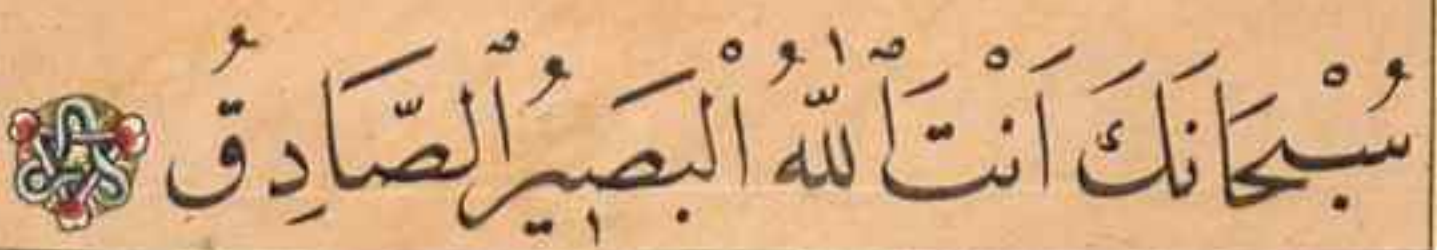 سُبْحَانَكَ اَنْتَ ٱللّٰهُ الْبَصٖيرُ ٱلصَّادِقُ